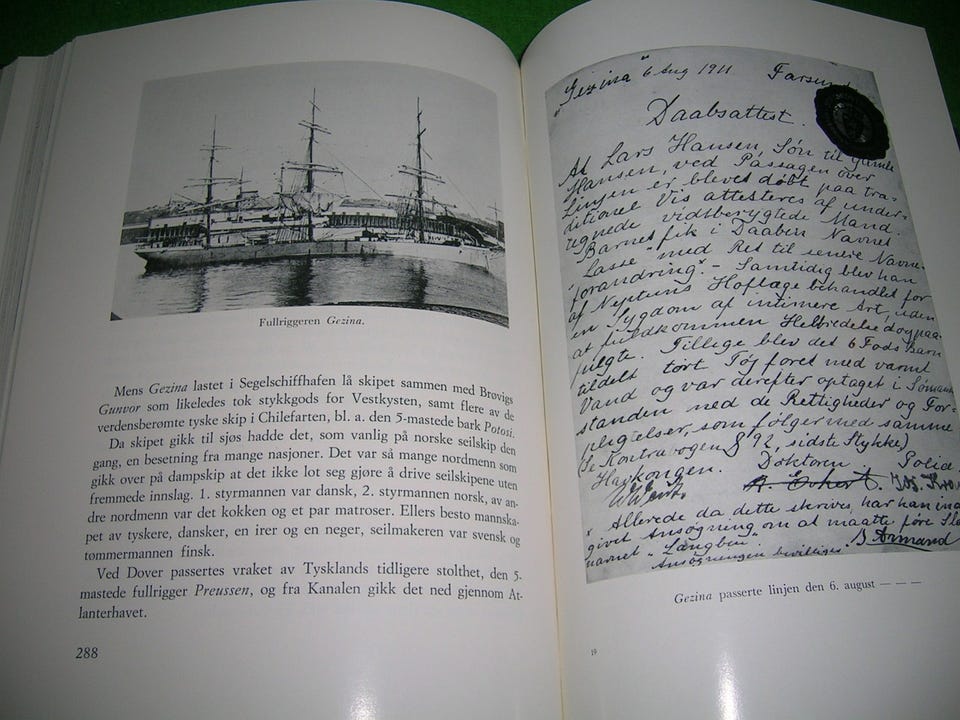 Fullriggeren Gezina.
Mens Gezina lastet i Segelschiffhafen lå skipet sammen med Brøvigs
Gunvor som likeledes tok stykkgods for Vestkysten, samt flere av de
verdensberømte tyske skip i Chilefarten, bl. a. den 5-mastede bark Potosi.
Da skipet gikk til sjøs hadde det, som vanlig på norske seilskip den
gang, en besetning fra mange nasjoner. Det var så mange nordmenn som
gikk over på dampskip at det ikke lot seg gjøre å drive seilskipene uten
fremmede innslag. 1. styrmannen var dansk, 2. styrmannen norsk, av an-
dre nordmenn var det kokken og et par matroser. Ellers besto mannska-
pet av tyskere, dansker, en irer og en neger, seilmakeren var svensk og
tømmermannen finsk.
Ved Dover passertes vraket av Tysklands tidligere stolthet, den 5-
mastede fullrigger Preussen, og fra Kanalen gikk det ned gjennom At-
lanterhavet.
288
"Gezina" 6 Aug 1911 Farsund
Daabsattest.
At Lars Hansen, Søn til gamle
Hansen, ved Passagen over
Linjen er blevet døbt paa tra-
ditionel Vis attesteres af under-
tegnede vidtberygtede Mænd.
Barnet fik i Daaben Navnet
"Lasse" med Ret til senere Navne-
forandring*. - Samtidig blev han
af Neptuns Hoflæge behandlet for
en Sygdom af intimere Art, uden
at fuldkommen Helbredelse dog paa-
fulgte. Tillige blev det 6 Fods Barn
tildelt tørt Tøj foret med varmt
Vand og var derefter optaget i Sømands-
standen med de Rettigheder og For-
pligtelser, som følger med samme
(Se Kontravogen § 92, sidste Stykke)
Havkongen. Doktoren Polid
* Allerede da dette skrives, har han ind
givet Ansøgning om at maatte føre
navnet "Langben"
Ansøgningen bevilliges. B Armand
Gezina passerte linjen den 6. august — — —
19